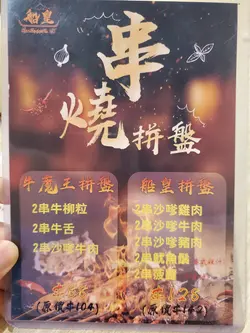 船皇
串
燒拼盤
牛魔王拼盤
2串牛柳粒
2串牛舌
2串沙嗲牛肉
(原價$104)
船皇拼盤
2串沙嗲雞肉
2串沙嗲牛肉
2串沙嗲豬肉
2串魷魚鬚
2串菠蘿
$128
(原價$142)